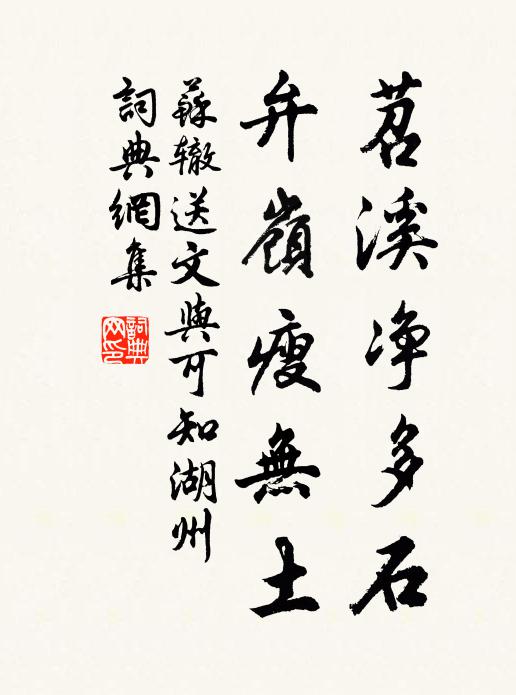 苕溪净多石
弁嶺瘦無土
蘇辙送文與可知湖州
詞典網集
詞典网印